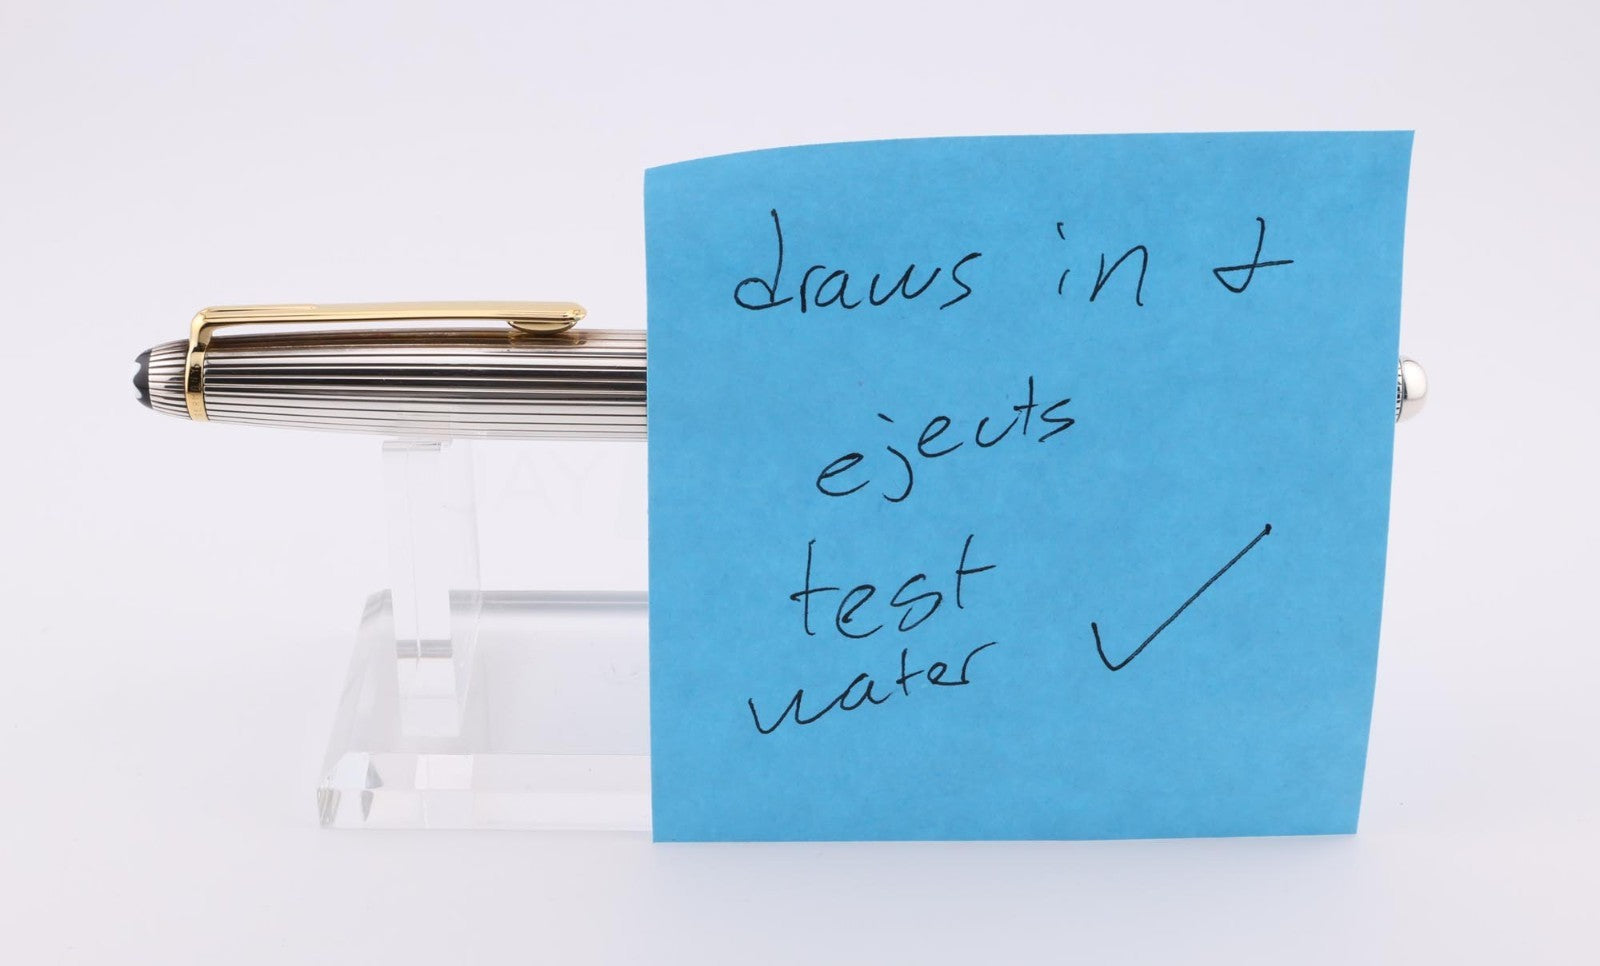 draws in &
ejects
test
water ✓